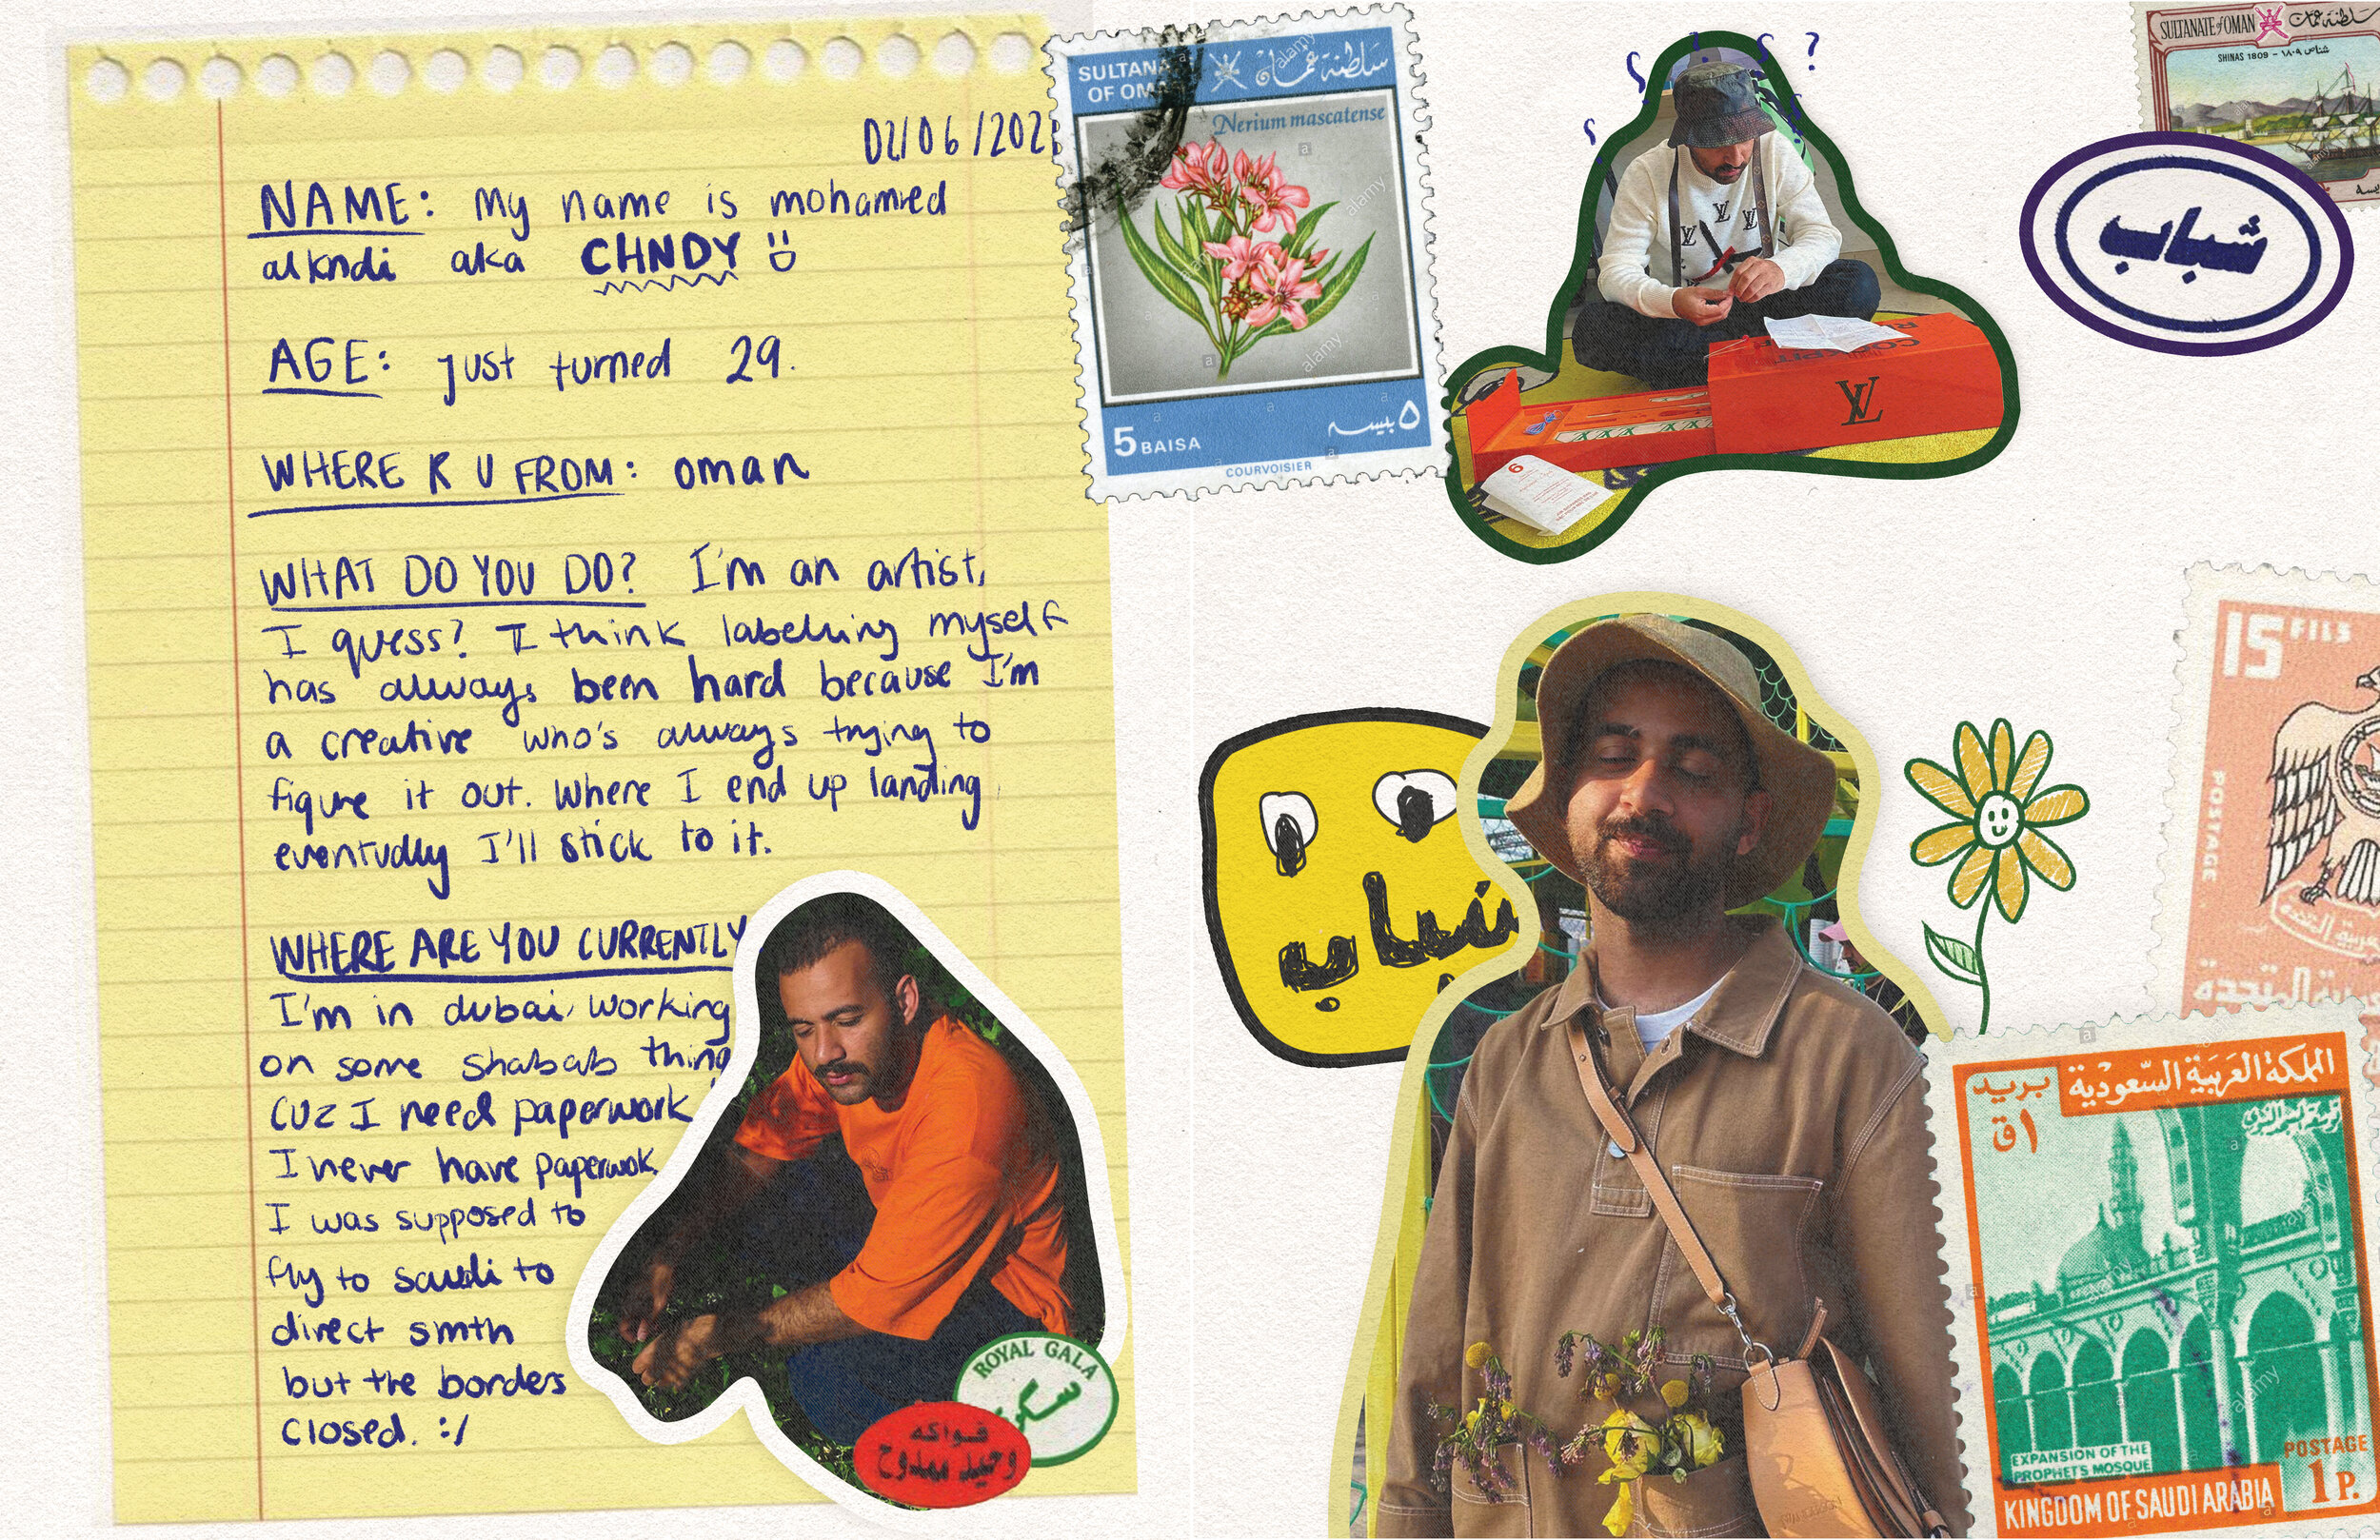 02/06/202
NAME: My name is mohamed
alkndi aka CHNDY
AGE: just turned 29.
WHERE R U FROM: oman
WHAT DO YOU DO? I'm an artist,
I guess? I think labelling myself
has always been hard because I'm
a creative who's always trying to
figure it out. Where I end up landing
eventually I'll stick to it.
WHERE ARE YOU CURRENTLY
I'm in dubai, working
on some shabab thing
cuz I need paperwork
I never have paperwok.
I was supposed to
fly to saudi to
direct smth
but the borders
closed. :/
ROYAL GALA
فواكه
وحيد ممدوح
SULTANA
OF OM
سلطنة عمان
Nerium mascatense
5 BAISA
٥ بيسه
COURVOISIER
?
LV
SULTANATE of OMAN
سلطنة عمان
SHINAS 1809 - ١٨٠٩ شناص
شباب
شباب
15 FILS
POSTAGE
المملكة العربية السعودية
بريد
١ق
EXPANSION OF THE
PROPHET'S MOSQUE
POSTAGE
1 P.
KINGDOM OF SAUDI ARABIA
alamy